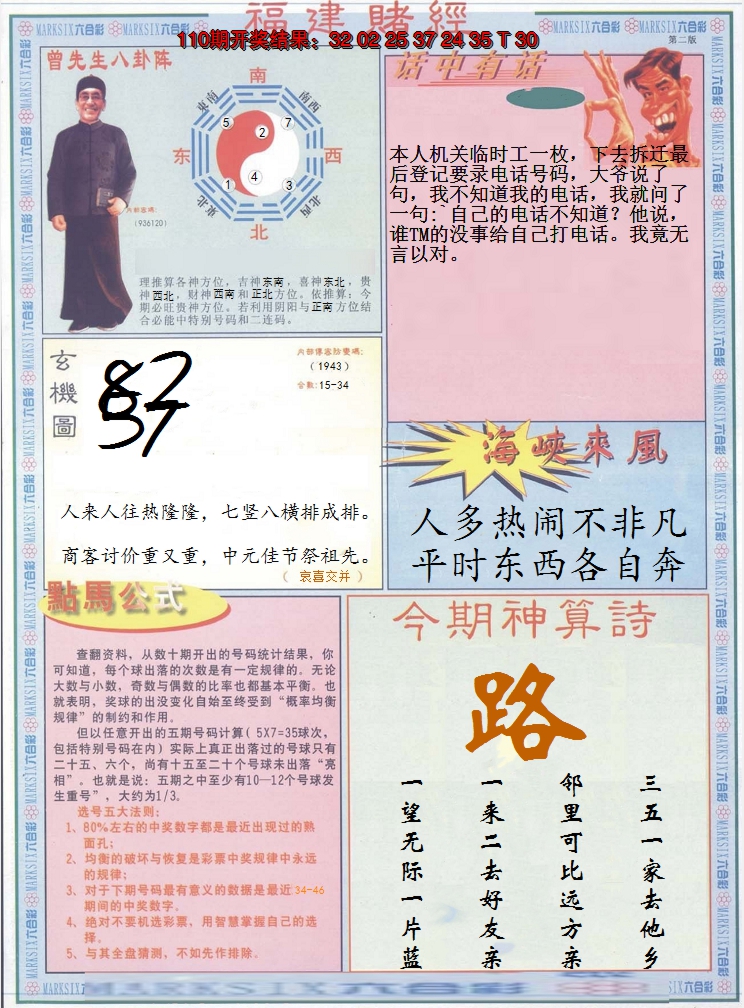 福建賭經
110期开奖结果：32 02 25 37 24 35 T 30
第二版
MARKSIX六合彩
曾先生八卦阵
南
東南
南西
5
2
7
东
西
1
4
3
東北
北西
北
內部密碼:
(936120)
理推算各神方位，吉神东南，喜神东北，贵
神西北，财神西南和正北方位。依推算：今
期必旺贵神方位。若利用阴阳与正南方位结
合必能中特别号码和二连码。
话中有话
本人机关临时工一枚，下去拆迁最
后登记要录电话号码，大爷说了
句，我不知道我的电话，我就问了
一句:`自己的电话不知道？他说，
谁TM的没事给自己打电话。我竟无
言以对。
玄機圖
内部傳密防密碼:
(1943)
合数:15-34
人来人往热隆隆，七竖八横排成排。
商客讨价重又重，中元佳节祭祖先。
（ 哀喜交并 ）
海峽來風
人多热闹不非凡
平时东西各自奔
點馬公式
查翻资料，从数十期开出的号码统计结果，你
可知道，每个球出落的次数是有一定规律的。无论
大数与小数，奇数与偶数的比率也都基本平衡。也
就表明，奖球的出没变化自始至终受到“概率均衡
规律”的制约和作用。
但以任意开出的五期号码计算( 5X7=35球次，
包括特别号码在内) 实际上真正出落过的号球只有
二十五、六个，尚有十五至二十个号球未出落“亮
相”。也就是说：五期之中至少有10—12个号球发
生重号”，大约为1/3。
选号五大法则：
1、80%左右的中奖数字都是最近出现过的熟
面孔；
2、均衡的破坏与恢复是彩票中奖规律中永远
的规律；
3、对于下期号码最有意义的数据是最近 34-46
期间的中奖数字。
4、绝对不要机选彩票，用智慧掌握自己的选
择。
5、与其全盘猜测，不如先作排除。
今期神算詩
路
三五一家去他乡
邻里可比远方亲
一来二去好友亲
一望无际一片蓝